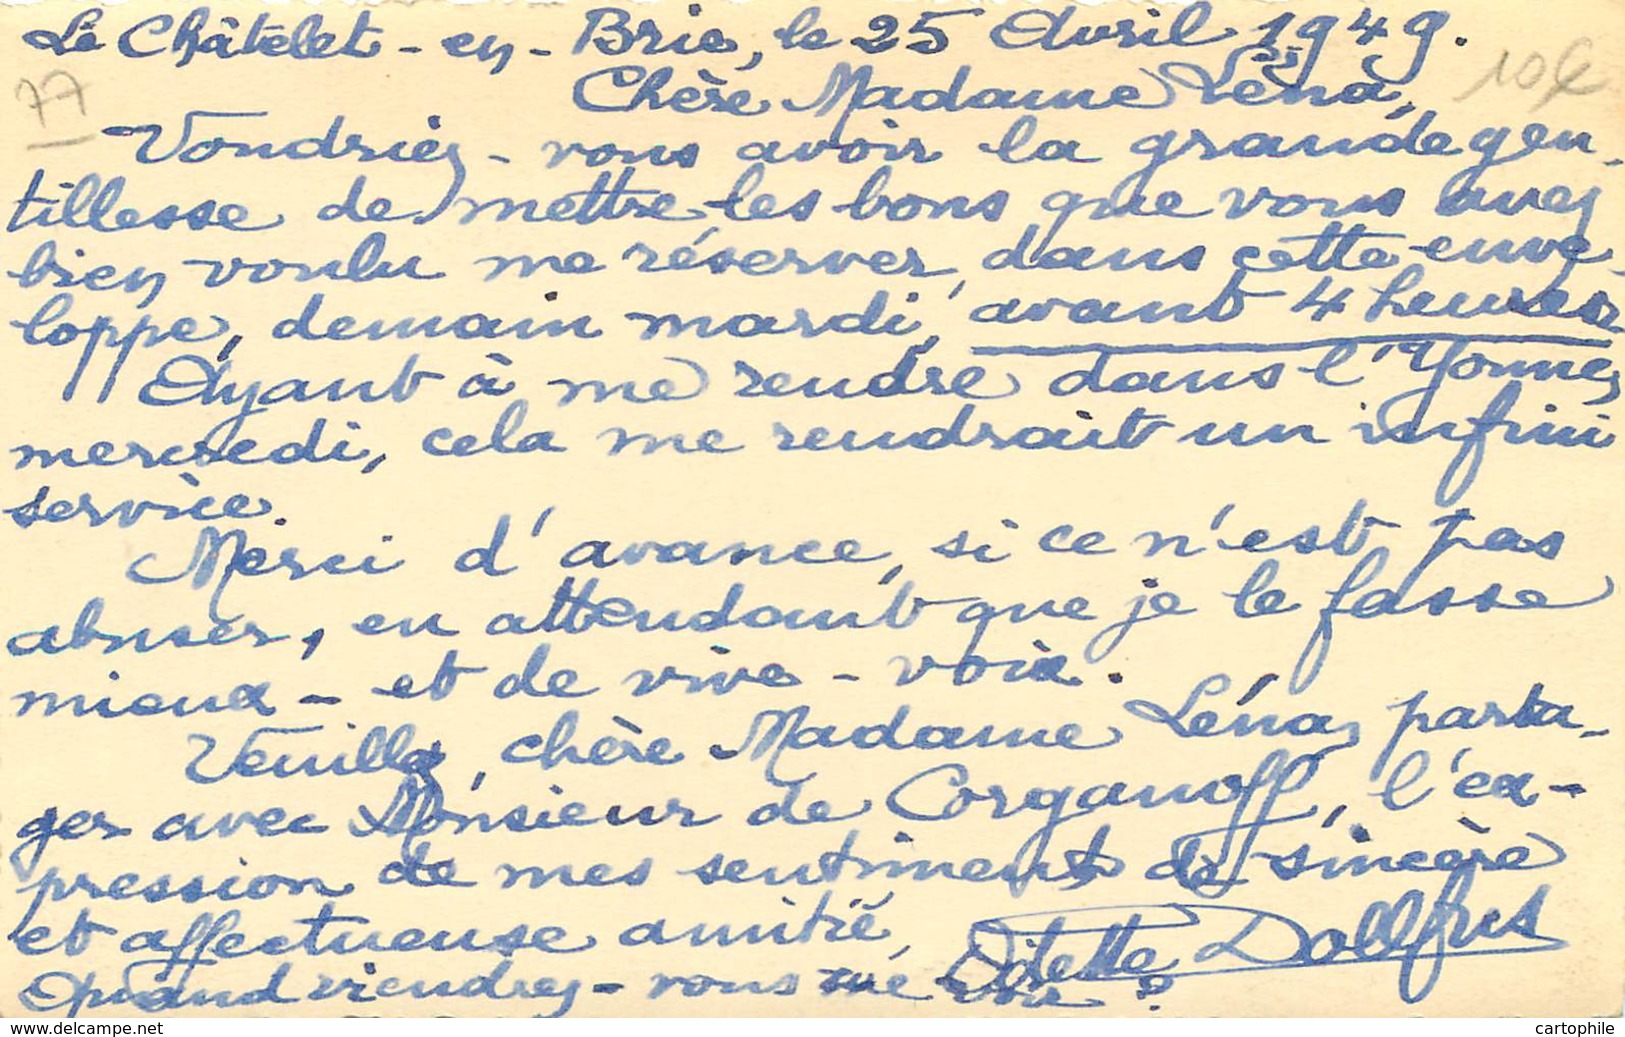 Le Châtelet-en-Brie, le 25 Avril 1949.
77
10€
Chère Madame Léna,
Voudriez-vous avoir la grande gen-
tillesse de mettre les bons que vous avez
bien voulu me réserver, dans cette enve-
loppe, demain mardi, avant 4 heures
Ayant à me rendre dans l'Yonne,
mercredi, cela me rendrait un infini
service.
Merci d'avance, si ce n'est pas
abuser, en attendant que je le fasse
mieux - et de vive-voix.
Veuillez, chère Madame Léna, parta-
ger avec Monsieur de Corganoff, l'ex-
pression de mes sentiments de sincère
et affectueuse amitié,
Odette Dollfus
Quand viendrez-vous me voir ?
© www.delcampe.net
cartophile